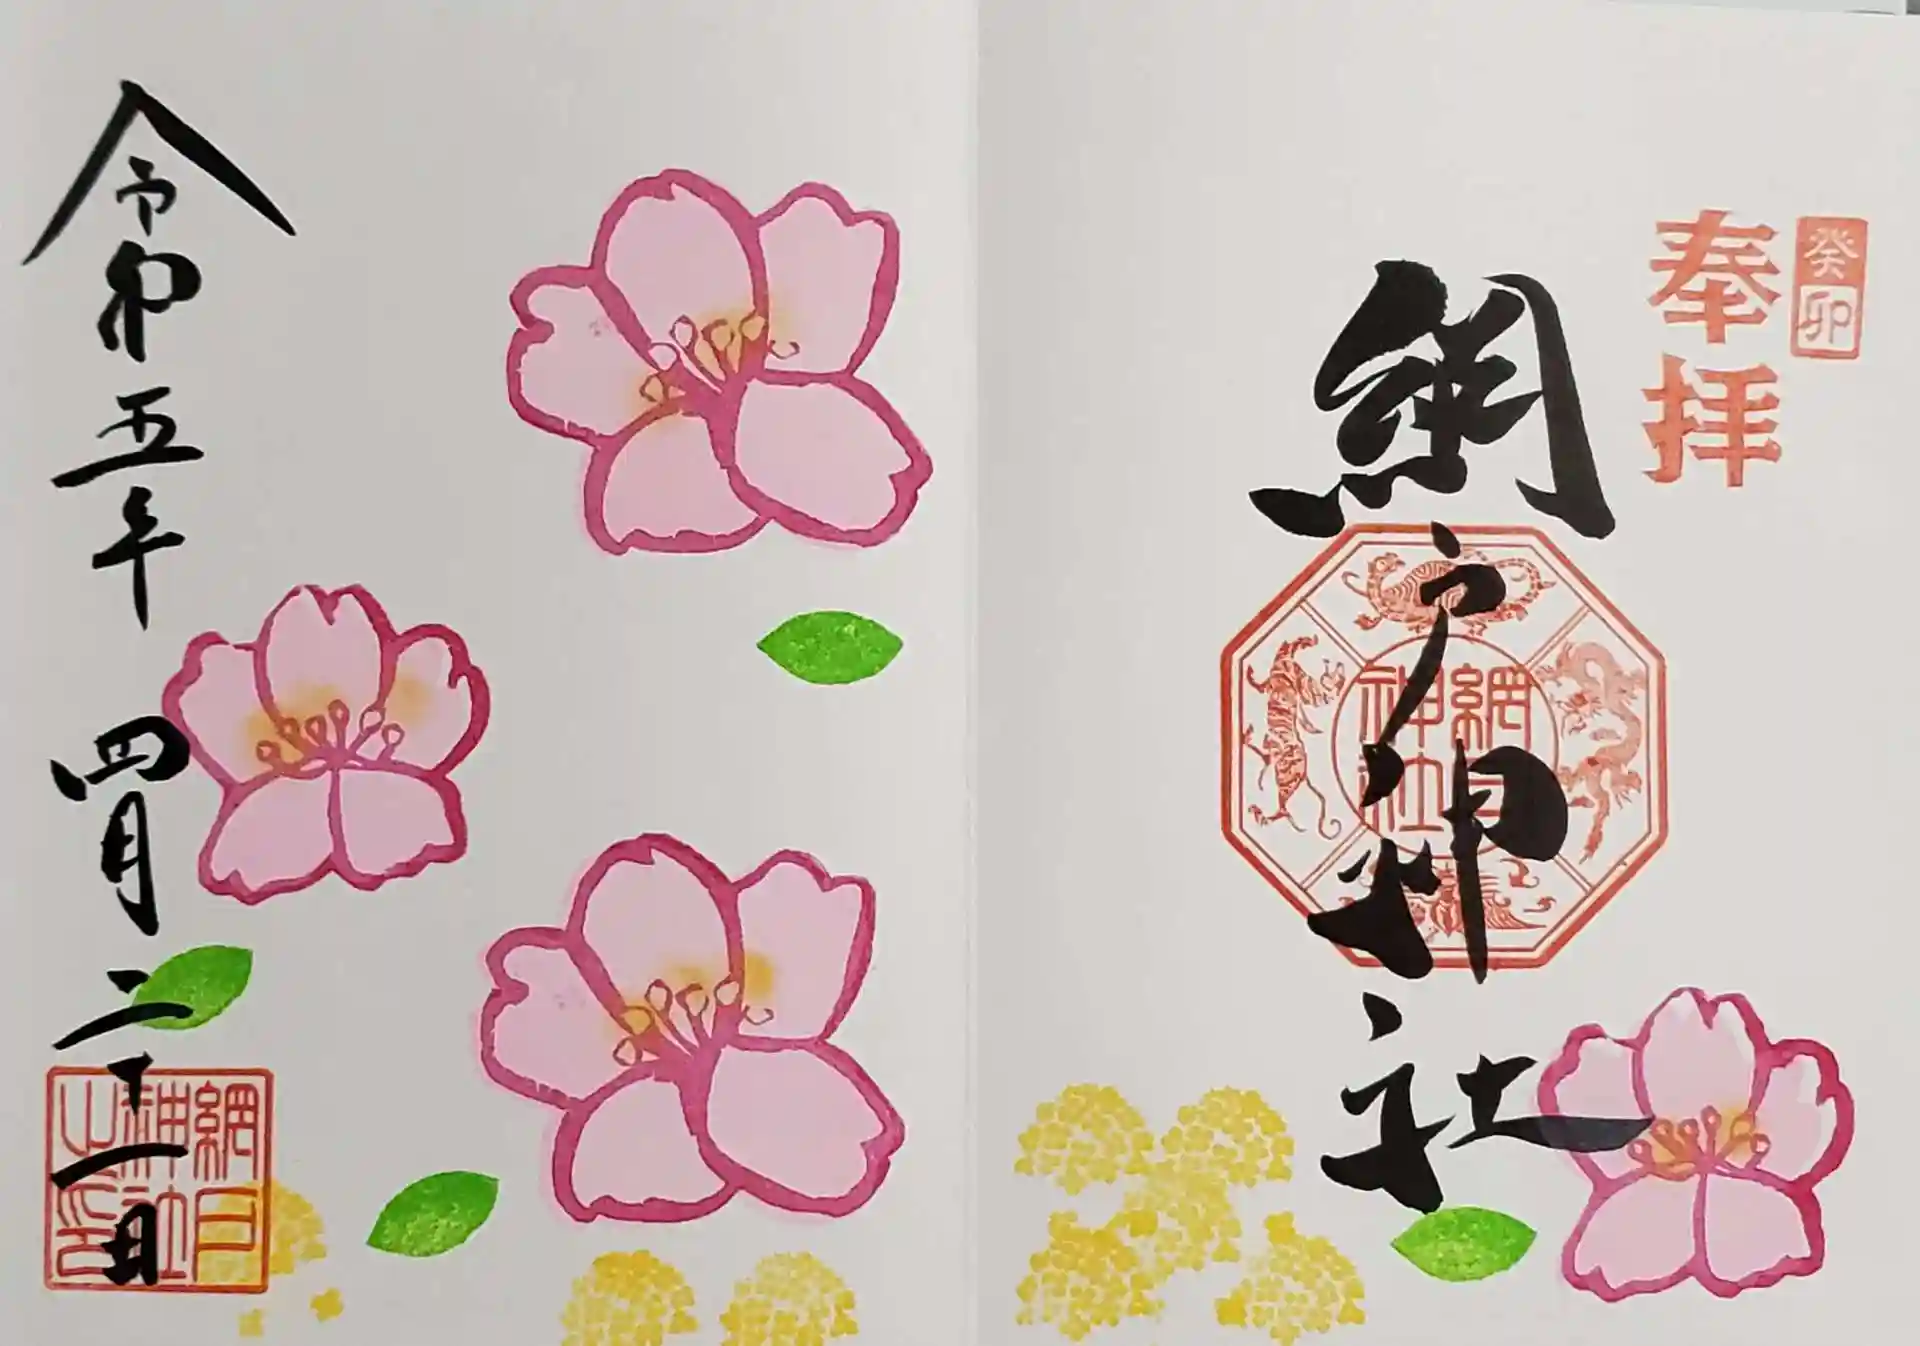 癸卯
奉拝
網戸神社
網戸
神社
令和五年 四月二十一日
網戸
神社
之印